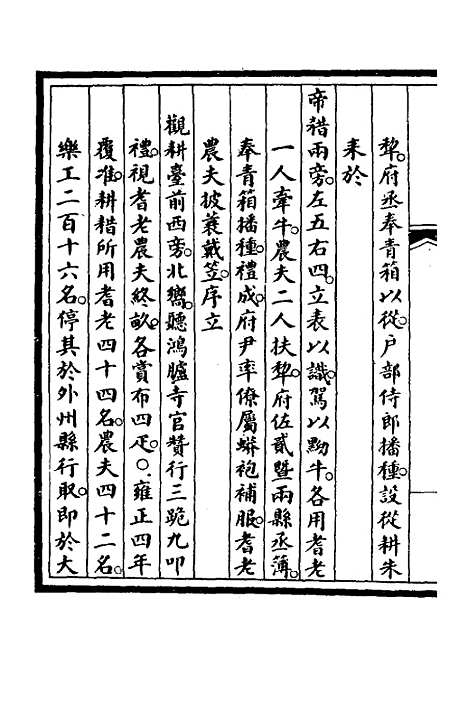 犂。府丞奉青箱以從。户部侍郎播種。設從耕朱
耒於
帝耤兩旁。左五右四。立表以識。駕以黝牛。各用耆老
一人牽牛。農夫二人扶犂。府佐貳暨兩縣丞簿。
奉青箱播種。禮成。府尹率僚屬蟒袍補服。耆老
農夫披蓑戴笠。序立
觀耕臺前西旁。北嚮。聽鴻臚寺官贊。行三跪九叩
禮。視耆老農夫終畝。各賞布四疋。○雍正四年
覆准。耕耤所用耆老四十四名。農夫四十二名。
樂工二百十六名。停其於外州縣行取。即於大